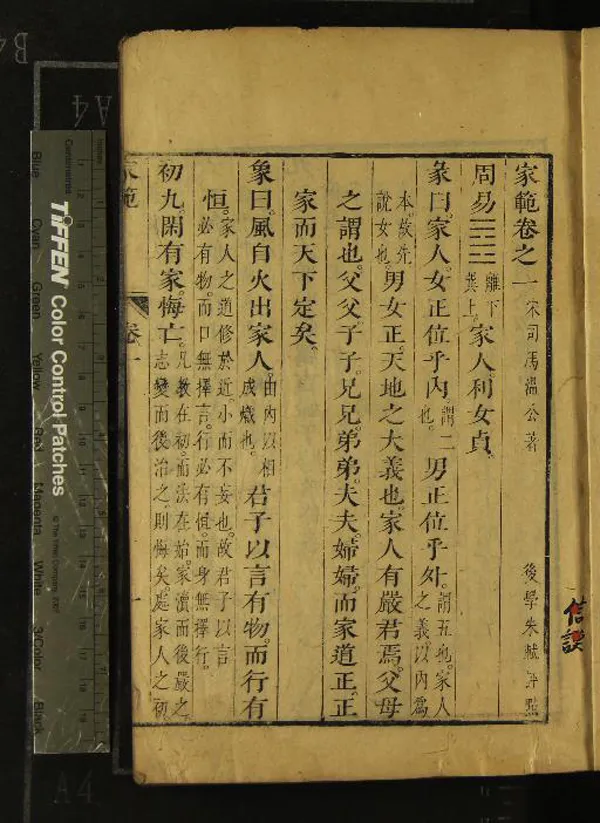 家範卷之一 宋司馬溫公著 後學朱軾評點
周易䷤離下巽上。家人。利女貞。
彖曰。家人。女正位乎內。謂二也。男正位乎外。謂五也。家人之義以內為
本。故先說女也。男女正。天地之大義也。家人有嚴君焉。父母
之謂也。父父子子。兄兄。弟弟。夫夫。婦婦。而家道正。正
家而天下定矣。
象曰。風自火出家人。由內以相成熾也。君子以言有物。而行有
恒。家人之道修於近。小而不妄也。故君子以言必有物。而口無擇言。行必有恒。而身無擇行。
初九。閑有家悔亡。凡教在初。而法在始。家瀆而後嚴之志變而後治之。則悔矣。處家人之初
家範
卷一
一
信談
TIFFEN Color Control Patches
© The Tiffen Company, 2007
Centimetres
Inches
Blue
Cyan
Green
Yellow
Red
Magenta
White
3/Color
Black
A4
B4
A4